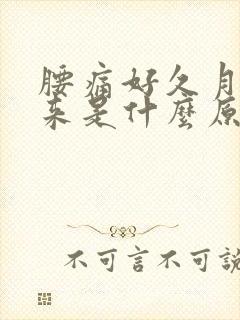 腰痛好久月
来是什麼原
不可言不可說